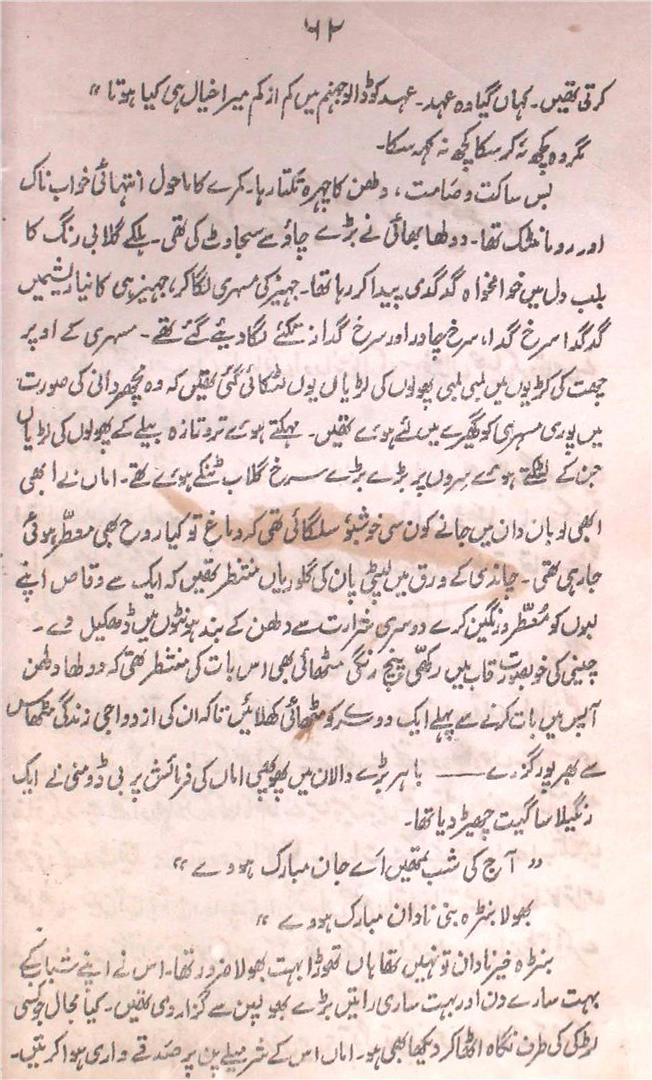 ۶۲
کرتی تھیں۔ کہاں گیا وہ عہد۔ عہد کو ڈالو جہنم میں کم از کم میرا خیال ہی کیا ہوتا “
مگر وہ کچھ نہ کر سکا کچھ نہ کہہ سکا۔
بس ساکت و صامت ، دلھن کا چہرہ تکتا رہا۔ کمرے کا ماحول انتہائی خواب ناک
اور رومانٹک تھا۔ دولھا بھائی نے بڑے چاؤ سے سجاوٹ کی تھی۔ ہلکے گلابی رنگ کا
بلب دل میں خوامخواہ گدگدی پیدا کر رہا تھا۔ جہیز کی مسہری لگا کر، جہیز ہی کا نیا ریشمیں
گدگدا سرخ گدا، سرخ چادر اور سرخ گداز تکئے لگا دیئے گئے تھے ۔ مسہری کے اوپر
چھت کی کڑیوں میں لمبی لمبی پھولوں کی لڑیاں یوں لٹکائی گئی تھیں کہ وہ مچھر دانی کی صورت
میں پوری مسہری کو گھیرے میں لئے ہوئے تھیں۔ مہکتے ہوئے تر و تازہ بیلے کے پھولوں کی لڑیاں
جن کے لٹکتے ہوئے سروں پر بڑے بڑے سرخ گلاب ٹنکے ہوئے تھے۔ اماں نے ابھی
ابھی لوبان دان میں جانے کون سی خوشبو سلگائی تھی کہ دماغ تو کیا روح بھی معطّر ہوئی
جا رہی تھی ۔ چاندی کے ورق میں لپٹی پان کی گلوریاں منتظر تھیں کہ ایک سے وقاص اپنے
لبوں کو مُعطّر و رنگین کرے دوسری شرارت سے دلھن کے بند ہونٹوں میں ڈھکیل دے ۔
چینی کی خوبصورت قاب میں رکھی پنج رنگی مٹھائی بھی اس بات کی منتظر تھی کہ دولھا دلھن
آپس میں بات کرنے سے پہلے ایک دوسرے کو مٹھائی کھلائیں تاکہ ان کی ازدواجی زندگی مٹھاس
سے بھر پور گزرے —— باہر بڑے دالان میں پھوپھی اماں کی فرمائش پر بی ڈومنی نے ایک
رنگیلا سا گیت چھیڑ دیا تھا۔
” آج کی شب تمھیں اے جان مبارک ہووے “
بھولا بنڑہ بنی نادان مبارک ہووے “
بنڑہ خیر نادان تو نہیں تھا ہاں تھوڑا بہت بھولا ضرور تھا۔ اس نے اپنے شباب کے
بہت سارے دن اور بہت ساری راتیں بڑے بھولپن سے گزار دی تھیں۔ کیا مجال جو کسی
لڑکی کی طرف نگاہ اٹھا کر دیکھا بھی ہو۔ اماں اس کے شرمیلے پن پر صدقے واری ہوا کرتیں۔